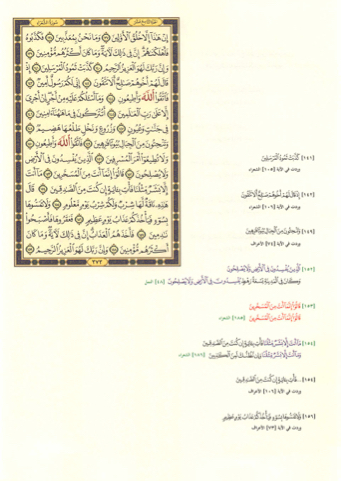 سورة الشعراء
إِنْ هَٰذَا إِلَّا خُلُقُ الْأَوَّلِينَ ١٣٧ وَمَا نَحْنُ بِمُعَذَّبِينَ ١٣٨ فَكَذَّبُوهُ
فَأَهْلَكْنَاهُمْ إِنَّ فِي ذَٰلِكَ لَآيَةً وَمَا كَانَ أَكْثَرُهُم مُّؤْمِنِينَ ١٣٩
وَإِنَّ رَبَّكَ لَهُوَ الْعَزِيزُ الرَّحِيمُ ١٤٠ كَذَّبَتْ ثَمُودُ الْمُرْسَلِينَ ١٤١ إِذْ
قَالَ لَهُمْ أَخُوهُمْ صَالِحٌ أَلَا تَتَّقُونَ ١٤٢ إِنِّي لَكُمْ رَسُولٌ أَمِينٌ ١٤٣
فَاتَّقُوا اللَّهَ وَأَطِيعُونِ ١٤٤ وَمَا أَسْأَلُكُمْ عَلَيْهِ مِنْ أَجْرٍ إِنْ أَجْرِيَ
إِلَّا عَلَىٰ رَبِّ الْعَالَمِينَ ١٤٥ أَتُتْرَكُونَ فِي مَا هَاهُنَا آمِنِينَ ١٤٦
فِي جَنَّاتٍ وَعُيُونٍ ١٤٧ وَزُرُوعٍ وَنَخْلٍ طَلْعُهَا هَضِيمٌ ١٤٨
وَتَنْحِتُونَ مِنَ الْجِبَالِ بُيُوتًا فَارِهِينَ ١٤٩ فَاتَّقُوا اللَّهَ وَأَطِيعُونِ ١٥٠
وَلَا تُطِيعُوا أَمْرَ الْمُسْرِفِينَ ١٥١ الَّذِينَ يُفْسِدُونَ فِي الْأَرْضِ
وَلَا يُصْلِحُونَ ١٥٢ قَالُوا إِنَّمَا أَنتَ مِنَ الْمُسَحَّرِينَ ١٥٣ مَا أَنتَ
إِلَّا بَشَرٌ مِّثْلُنَا فَأْتِ بِآيَةٍ إِن كُنتَ مِنَ الصَّادِقِينَ ١٥٤ قَالَ
هَٰذِهِ نَاقَةٌ لَّهَا شِرْبٌ وَلَكُمْ شِرْبُ يَوْمٍ مَّعْلُومٍ ١٥٥ وَلَا تَمَسُّوهَا
بِسُوءٍ فَيَأْخُذَكُمْ عَذَابُ يَوْمٍ عَظِيمٍ ١٥٦ فَعَقَرُوهَا فَأَصْبَحُوا
نَادِمِينَ ١٥٧ فَأَخَذَهُمُ الْعَذَابُ إِنَّ فِي ذَٰلِكَ لَآيَةً وَمَا كَانَ
أَكْثَرُهُم مُّؤْمِنِينَ ١٥٨ وَإِنَّ رَبَّكَ لَهُوَ الْعَزِيزُ الرَّحِيمُ ١٥٩
٣٧٣
[١٤١] كَذَّبَتْ ثَمُودُ الْمُرْسَلِينَ
وردت في الآية [١٠٥] الشعراء
[١٤٢] إِذْ قَالَ لَهُمْ أَخُوهُمْ صَالِحٌ أَلَا تَتَّقُونَ
وردت في الآية [١٠٦] الشعراء
[١٤٩] وَتَنْحِتُونَ مِنَ الْجِبَالِ بُيُوتًا فَارِهِينَ
وردت في الآية [٧٤] الأعراف
[١٥٢] الَّذِينَ يُفْسِدُونَ فِي الْأَرْضِ وَلَا يُصْلِحُونَ
وَكَانَ فِي الْمَدِينَةِ تِسْعَةُ رَهْطٍ يُفْسِدُونَ فِي الْأَرْضِ وَلَا يُصْلِحُونَ [٤٨] النمل
[١٥٣] قَالُوا إِنَّمَا أَنتَ مِنَ الْمُسَحَّرِينَ
قَالُوا إِنَّمَا أَنتَ مِنَ الْمُسَحَّرِينَ [١٨٥] الشعراء
[١٥٤] مَا أَنتَ إِلَّا بَشَرٌ مِّثْلُنَا فَأْتِ بِآيَةٍ إِن كُنتَ مِنَ الصَّادِقِينَ
وَمَا أَنتَ إِلَّا بَشَرٌ مِّثْلُنَا وَإِن نَّظُنُّكَ لَمِنَ الْكَاذِبِينَ [١٨٦] الشعراء
[١٥٤] ... فَأْتِ بِآيَةٍ إِن كُنتَ مِنَ الصَّادِقِينَ
وردت في الآية [١٠٦] الأعراف
[١٥٦] وَلَا تَمَسُّوهَا بِسُوءٍ فَيَأْخُذَكُمْ عَذَابُ يَوْمٍ عَظِيمٍ
وردت في الآية [٧٣] الأعراف